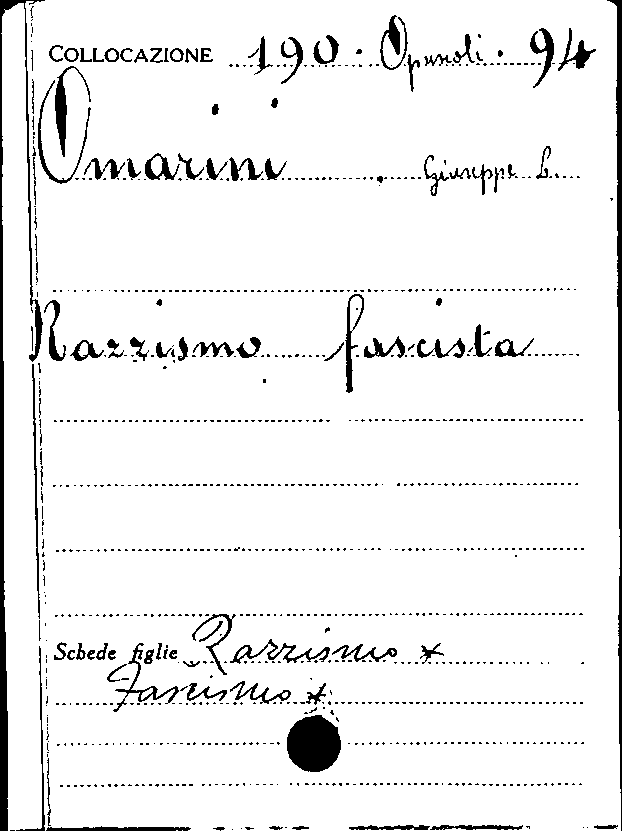 COLLOCAZIONE 190. Opuscoli. 94
Omarini . Giuseppe L.
Razzismo fascista
Schede figlie Razzismo x
Fascismo x